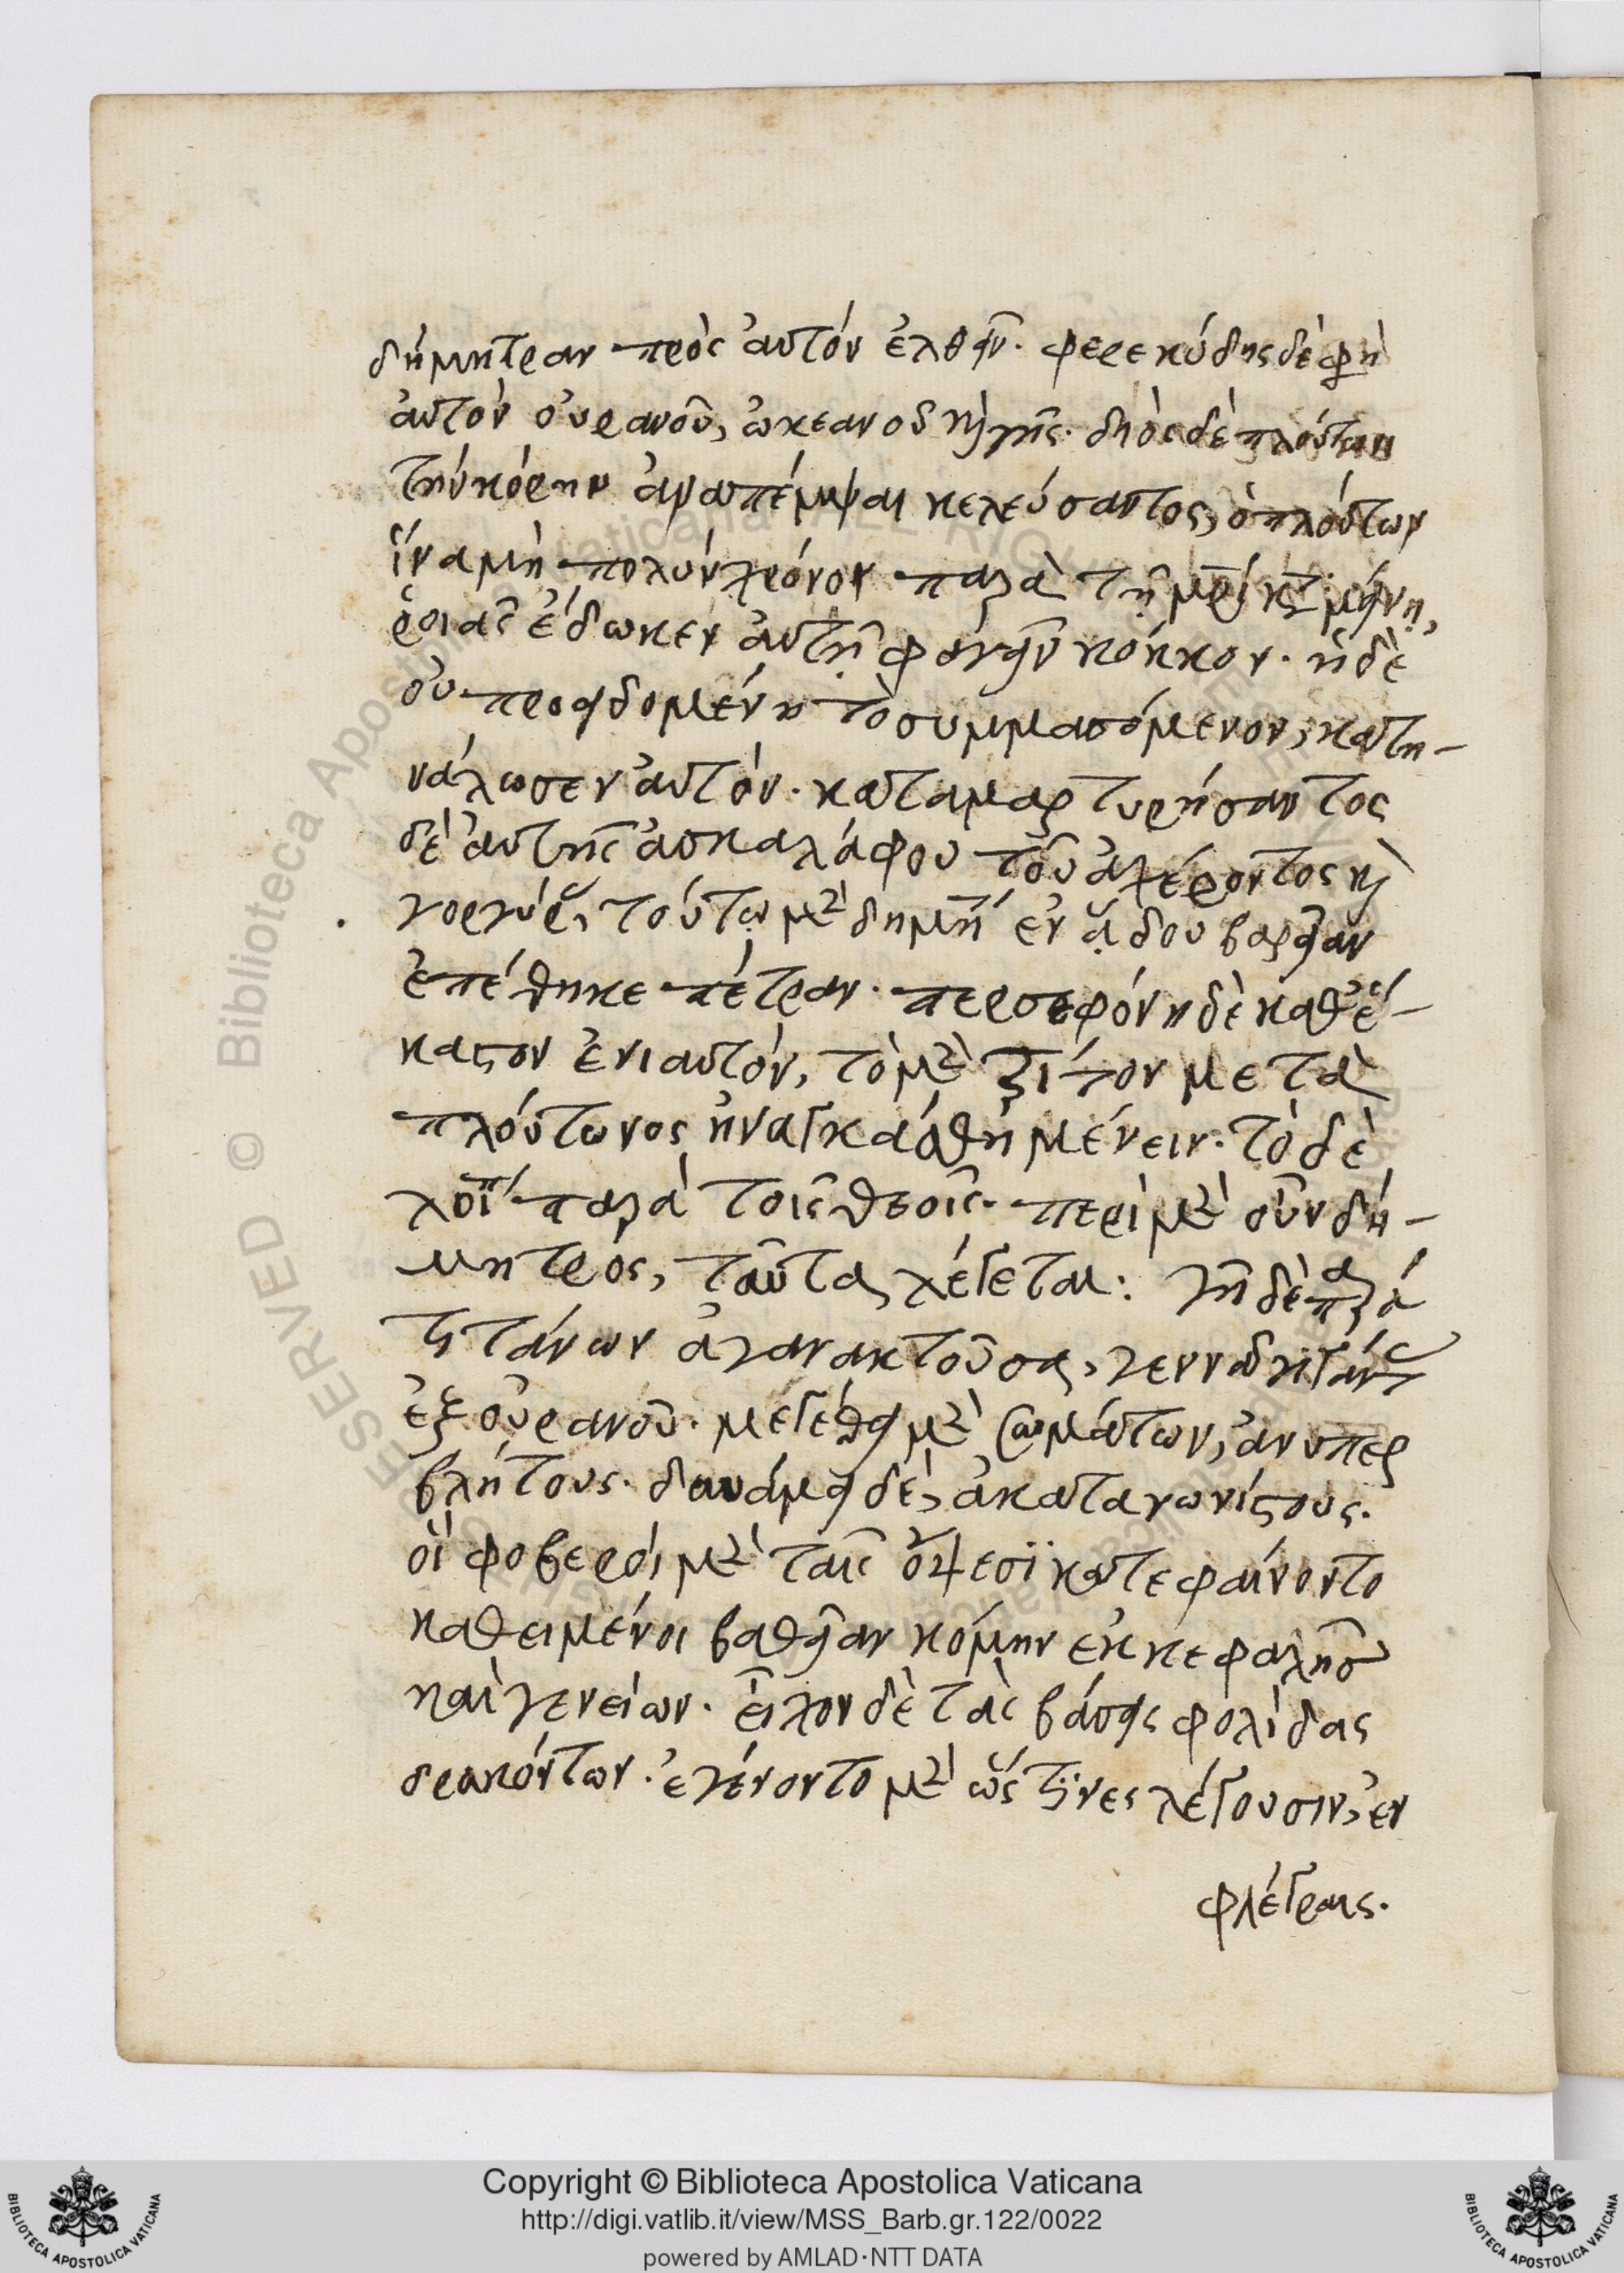 δήμητραν πρὸς ἀυτόν ἐλθεῖν. φερεκύδης δὲ φησὶ
ἀυτὸν ὀυρανοῦ, ὠκεανοῦ καὶ γῆς. διὸς δὲ πλούτωνι
τὴν κόρην ἀναπέμψαι κελεύσαντος, ὁ πλούτων
ἵνα μὴ πολὺν χρόνον παρὰ τῇ μρὶ καταμείνῃ,
ῥοιᾶς ἔδωκεν ἀυτῇ φαγεῖν κόκκον. ἡ δὲ
ὀυ προειδομένη τὸ συμμασόμενον, κατη-
νάλωσεν ἀυτόν. καταμαρτυρήσαντος
δὲ ἀυτῆς ἀσκαλάφου τοῦ ἀχέροντος καὶ
γοργύρας, τούτῳ μὲν δημή ἐν ᾅδου βαρεῖαν
ἐπέθηκε πέτραν. περσεφόνη δὲ καθ' ἕ-
καστον ἐνιαυτόν, τὸ μὲν τρίτον μετὰ
πλούτωνος ἠναγκάσθη μένειν. τὸ δὲ
λοιπ παρὰ τοῖς θεοῖς. περὶ μὲν οὖν δή-
μητρος, ταῦτα λέγεται: γῆ δὲ περὶ
τιτάνων ἀγανακτοῦσα, γεννᾷ γίγαντας
ἐξ ὀυρανοῦ. μεγέθει μὲν σωμάτων, ἀνυπερ
βλήτους. δυνάμει δὲ, ἀκαταγωνίστους.
οἳ φοβεροὶ μὲν ταῖς ὄψεσϊ κατεφαίνοντο
καθειμένοι βαθεῖαν κόμην ἐκ κεφαλῆς
καὶ γενείων. εἶχον δὲ τὰς βάσεις φολίδας
δρακόντων. ἐγένοντο μὲν ὥς τϊνες λέγουσιν, ἐν
φλέγραις.
Copyright © Biblioteca Apostolica Vaticana
http://digi.vatlib.it/view/MSS_Barb.gr.122/0022
powered by AMLAD·NTT DATA